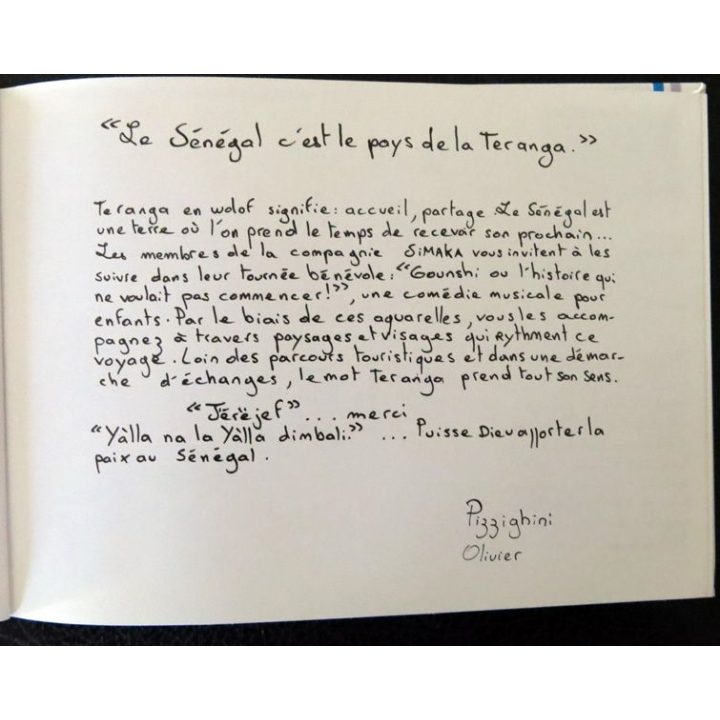 “Le Sénégal c'est le pays de la Teranga.”
Teranga en wolof signifie : accueil, partage. Le Sénégal est
une terre où l'on prend le temps de recevoir son prochain...
Les membres de la compagnie SiMAKA vous invitent à les
suivre dans leur tournée bénévole : “Gounshi ou l'histoire qui
ne voulait pas commencer!”, une comédie musicale pour
enfants. Par le biais de ces aquarelles, vous les accom-
pagnez à travers paysages et visages qui Rythment ce
voyage. Loin des parcours touristiques et dans une démar-
che d'échanges, le mot Teranga prend tout son sens.
“Jërëjef” ... merci
“Yàlla na la Yàlla dimbali.” ... Puisse Dieu apporter la
paix au Sénégal.
Pizzighini
Olivier